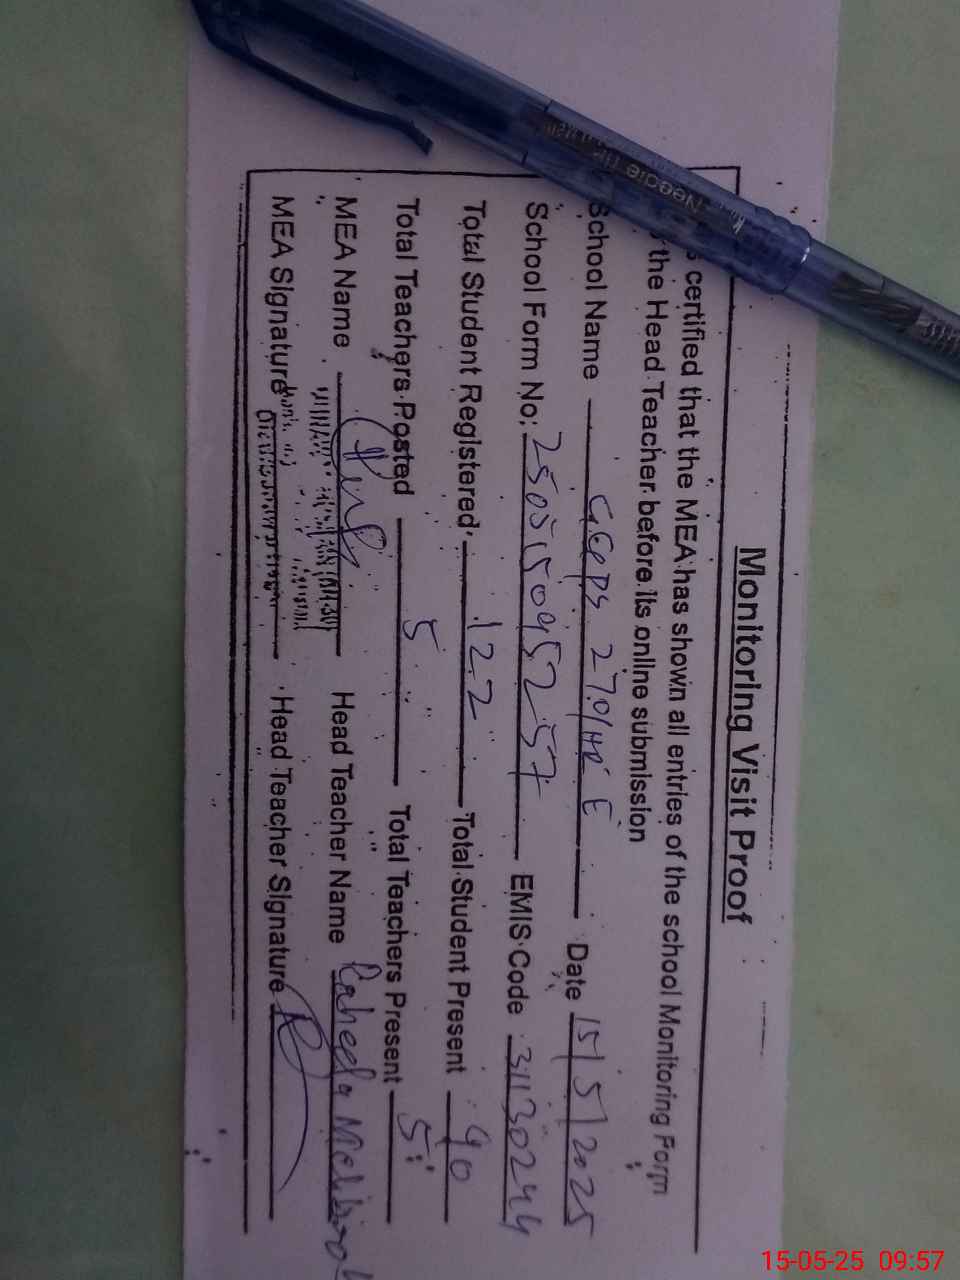 Monitoring Visit Proof
certified that the MEA has shown all entries of the school Monitoring Form
the Head Teacher before its online submission
School Name GGPS 270/HR E Date 15/5/2025
School Form No: 25051509525 7 EMIS Code 31130244
Total Student Registered 122 Total Student Present 90
Total Teachers Posted 5 Total Teachers Present 5
MEA Name Head Teacher Name Raheela
MEA Signature Head Teacher Signature
Needle
15-05-25 09:57